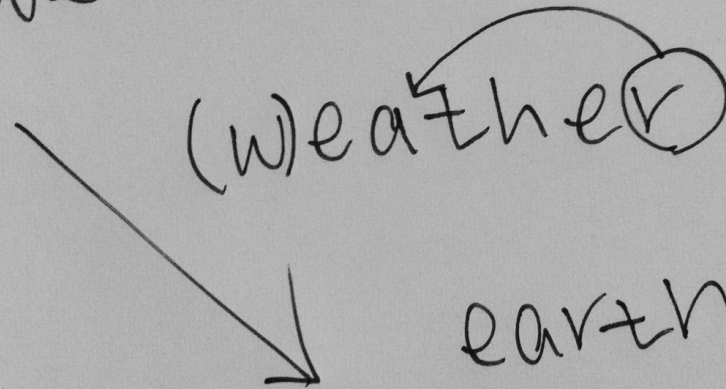 (w)eather
earth